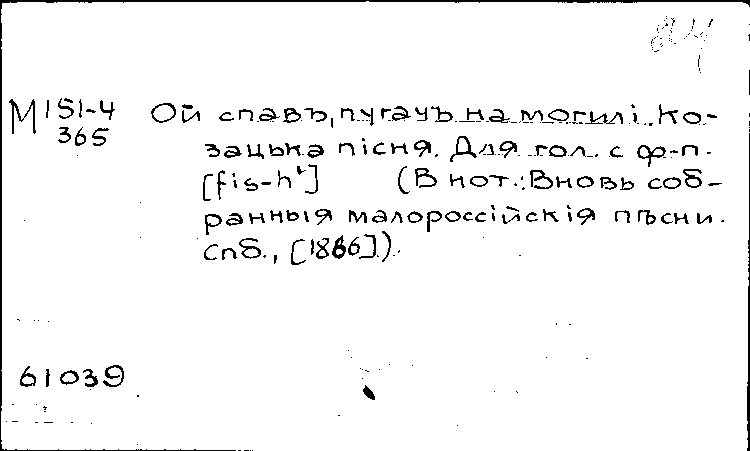 84
М 151-4 Ой спавъ, пугачъ на могилі. Ко-
365 зацька пісня. Для гол. с ф-п.
[fis-h¹] (В нот.: Вновь соб-
ранныя малороссійскія пѣсни.
Спб., [1866]).
61039